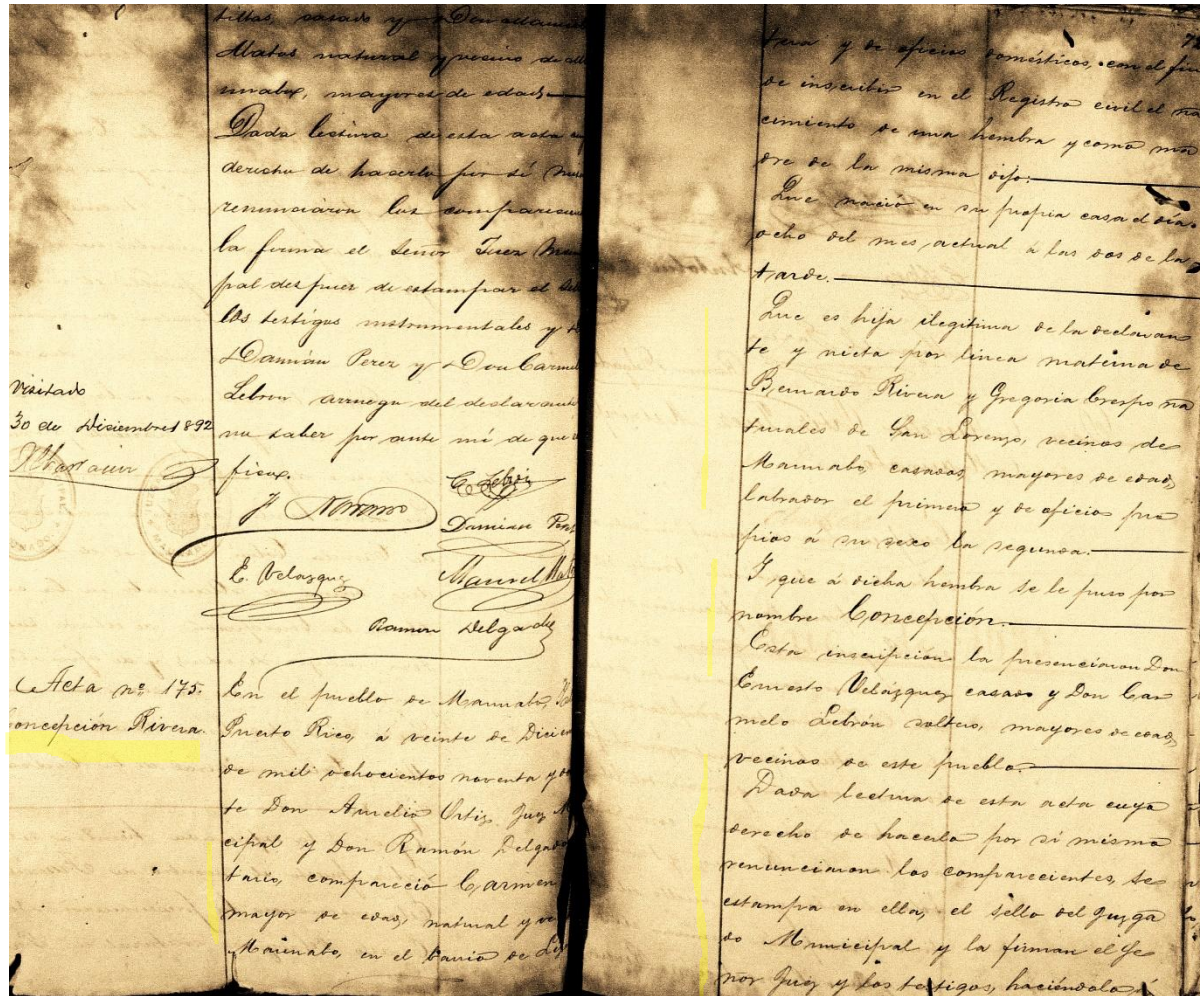 tillas, casado y Don Manuel
Matos natural y vecino de
unabo, mayores de edad
Dada lectura de esta acta
derecho de hacerlo por sí
renunciaron los
la firma el Señor Juez
pal despues de estampar el
los testigos instrumentales y
Damián Perez y Don
Lebron
no saber por ante mí de que
fico.
Visitado
30 de Diciembre 1892
J Navarro
C. Lebrón
Damian
E. Velazquez
Manuel
Ramon Delgado
Acta nº 175.
Concepción Rivera.
En el pueblo de Maunabo,
Puerto Rico, á veinte de
de mil ochocientos noventa y
te Don Aurelio Ortiz Juez
cipal y Don Ramón Delgado
tario, compareció Carmen
mayor de edad, natural y
Maunabo, en el barrio de
tera y de oficios domésticos, con el fin
de inscribir en el Registro civil el na
cimiento de una hembra y como ma
dre de la misma dijo:
Que nació en su propia casa el día
ocho del mes actual á las dos de la
tarde.
Que es hija ilegitima de la declaran
te y nieta por linea materna de
Bernardo Rivera y Gregoria Crespo na
turales de San Lorenzo, vecinos de
Maunabo, casados, mayores de edad,
labrador el primero y de oficios pro
pios á su sexo la segunda.
I que á dicha hembra se le puso por
nombre Concepción.
Esta inscripción la presenciaron Don
Ernesto Velázquez casado y Don Car
melo Lebrón soltero, mayores de edad,
vecinos de este pueblo.
Dada lectura de esta acta cuyo
derecho de hacerlo por sí mismo
renunciaron los comparecientes, se
estampa en ella, el sello del Juzga
do Municipal y la firman el Se
ñor Juez y los testigos, haciéndolo